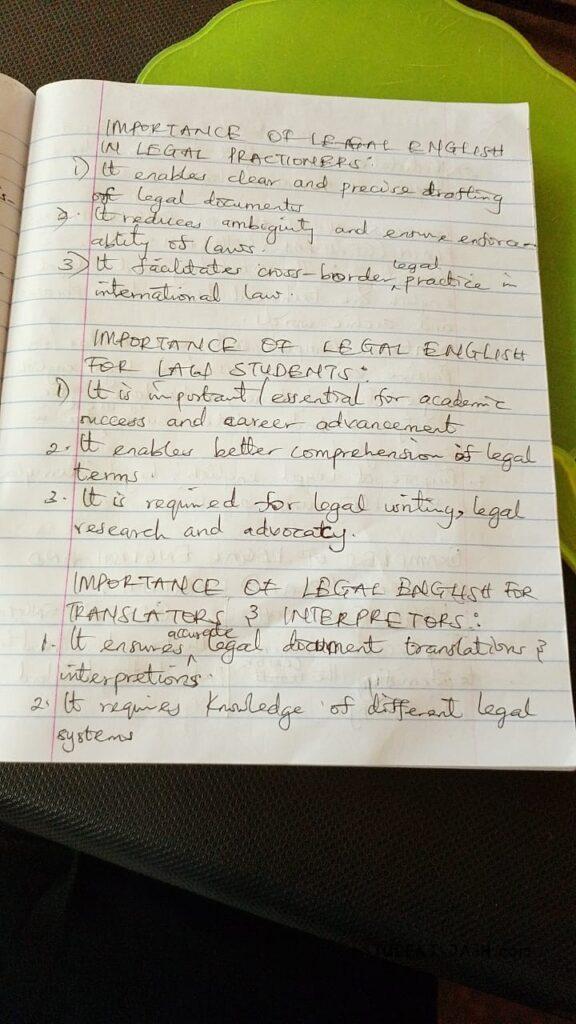 IMPORTANCE OF LEGAL ENGLISH
IN LEGAL PRACTIONERS:
1) It enables clear and precise drafting
of legal documents
2. It reduces ambiguity and ensure enforce-
ability of laws.
3) It facilitates cross-border legal practice in
international law.
IMPORTANCE OF LEGAL ENGLISH
FOR LAW STUDENTS:
1) It is important/essential for academic
success and career advancement
2. It enables better comprehension of legal
terms.
3. It is required for legal writing, legal
research and advocacy.
IMPORTANCE OF LEGAL ENGLISH FOR
TRANSLATORS & INTERPRETORS:
1. It ensures accurate legal document translations &
interpretions.
2. It requires knowledge of different legal
systems